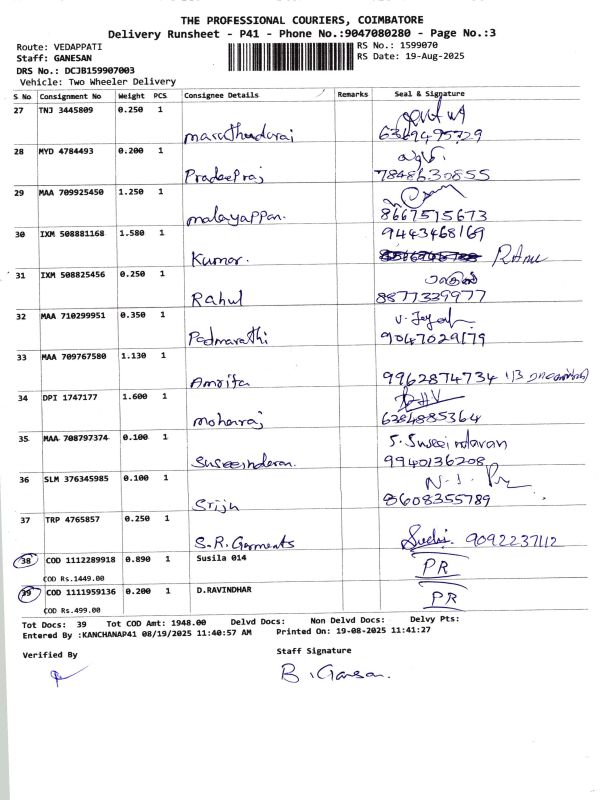 THE PROFESSIONAL COURIERS, COIMBATORE
Delivery Runsheet - P41 - Phone No.:9047080280 - Page No.:3
Route: VEDAPPATI RS No.: 1599070
Staff: GANESAN RS Date: 19-Aug-2025
DRS No.: DCJB159907003
Vehicle: Two Wheeler Delivery
S No Consignment No Weight PCS Consignee Details Remarks Seal & Signature
27 TNJ 3445809 0.250 1
marathadurai 6369495729
28 MYD 4784493 0.200 1
Pradeepraj 7848630855
29 MAA 709925450 1.250 1
malayappan. 8667515673
30 IXM 508881168 1.580 1 9443468169
Kumar. RAmu
31 IXM 508825456 0.250 1
Rahul 8877339977
32 MAA 710299951 0.350 1
Padmavathi 9047029179
33 MAA 709767580 1.130 1
Amrita 9962874734
34 DPI 1747177 1.600 1
mohanraj 6284885364
35 MAA 708797374 0.100 1 S. Suseendaran
Suseendaran. 9940136208
36 SLM 376345985 0.100 1
Srijh 8608355789
37 TRP 4765857 0.250 1
S.R. Garments 9092237112
38 COD 1112289918 0.890 1 Susila 014 PR
COD Rs.1449.00
39 COD 1111959136 0.200 1 D.RAVINDHAR PR
COD Rs.499.00
Tot Docs: 39 Tot COD Amt: 1948.00 Delvd Docs: Non Delvd Docs: Delvy Pts:
Entered By :KANCHANAP41 08/19/2025 11:40:57 AM Printed On: 19-08-2025 11:41:27
Verified By Staff Signature
B. Ganesan.